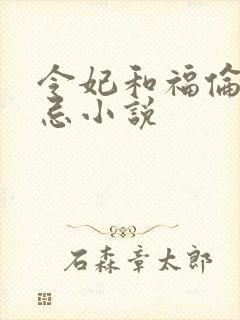 令妃和福倫
忌小説
石森章太郎